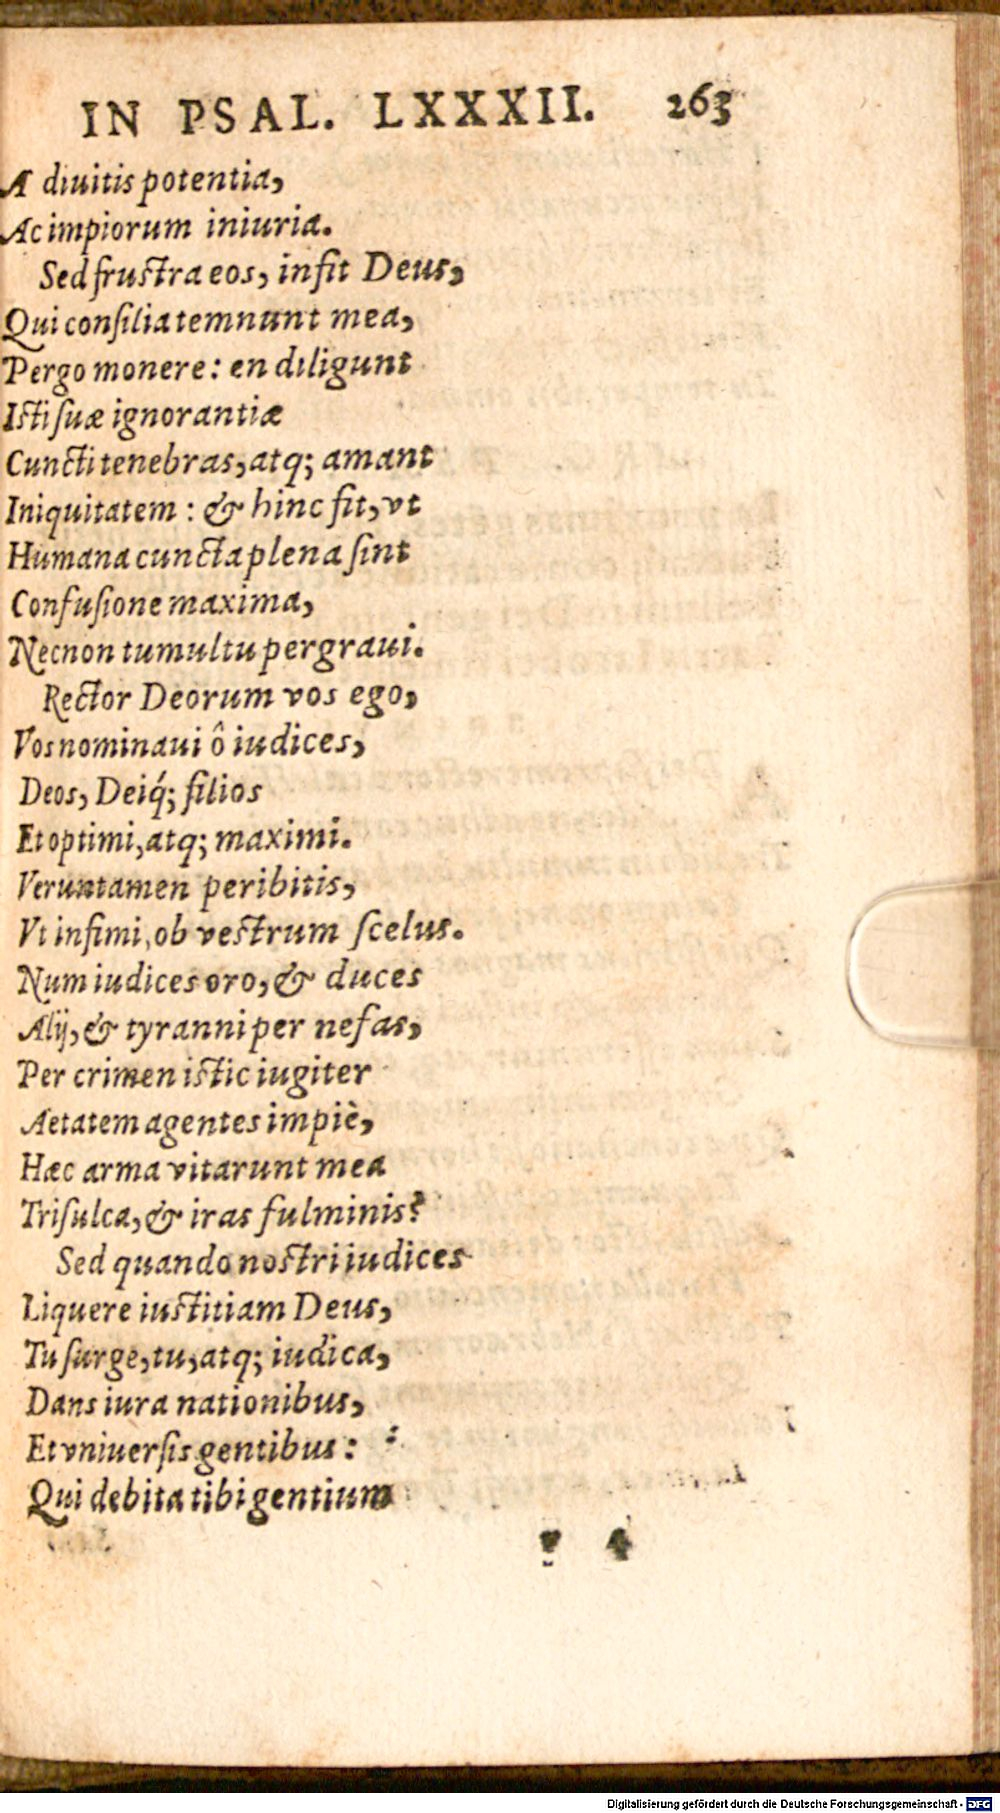 IN PSAL. LXXXII. 263
A diuitis potentia,
Ac impiorum iniuria.
Sed frustra eos, infit Deus,
Qui consilia temnunt mea,
Pergo monere: en diligunt
Isti suæ ignorantiæ
Cuncti tenebras, atq; amant
Iniquitatem: & hinc fit, vt
Humana cuncta plena sint
Confusione maxima,
Necnon tumultu pergraui.
Rector Deorum vos ego,
Vos nominaui ô iudices,
Deos, Deiq́; filios
Et optimi, atq; maximi.
Veruntamen peribitis,
Vt infimi, ob vestrum scelus.
Num iudices oro, & duces
Alij, & tyranni per nefas,
Per crimen istic iugiter
Aetatem agentes impiè,
Hæc arma vitarunt mea
Trisulca, & iras fulminis?
Sed quando nostri iudices
Liquere iustitiam Deus,
Tu surge, tu, atq; iudica,
Dans iura nationibus,
Et vniuersis gentibus:
Qui debita tibi gentium
4
Digitalisierung gefördert durch die Deutsche Forschungsgemeinschaft - DFG